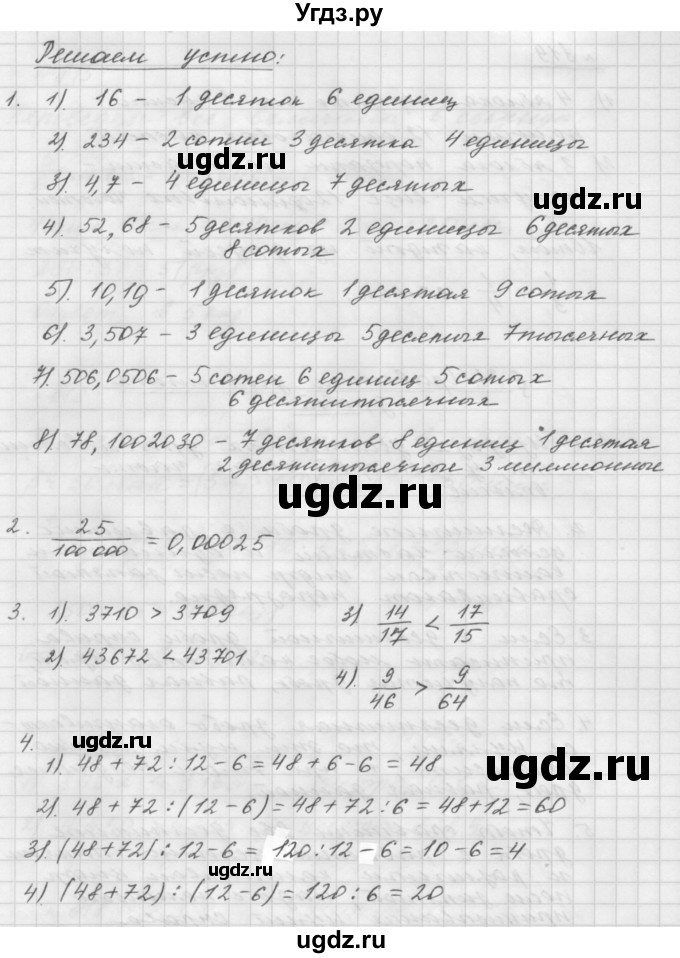 Угдз.ру
Решаем устно:
1. 1). 16 – 1 десяток 6 единиц
2). 234 – 2 сотни 3 десятка 4 единицы
ugdz.ru ugdz.ru
3). 4,7 – 4 единицы 7 десятых
4). 52,68 – 5 десятков 2 единицы 6 десятых
8 сотых
5). 10,19 – 1 десяток 1 десятая 9 сотых
6). 3,507 – 3 единицы 5 десятых 7 тысячных
7). 506,0506 – 5 сотен 6 единиц 5 сотых
6 десятитысячных
8). 78,1002030 – 7 десятков 8 единиц 1 десятая
2 десятитысячные 3 миллионные
ugdz.ru
2. 25/100 000 = 0,00025
3. 1). 3710 > 3709
2). 43672 < 43701
3) 14/17 < 17/15
4). 9/46 > 9/64
ugdz.ru
4.
1). 48 + 72 : 12 – 6 = 48 + 6 – 6 = 48
ugdz.ru
2). 48 + 72 : (12 – 6) = 48 + 72 : 6 = 48 + 12 = 60
3). (48 + 72) : 12 – 6 = 120 : 12 – 6 = 10 – 6 = 4
4) (48 + 72) : (12 – 6) = 120 : 6 = 20
ugdz.ru